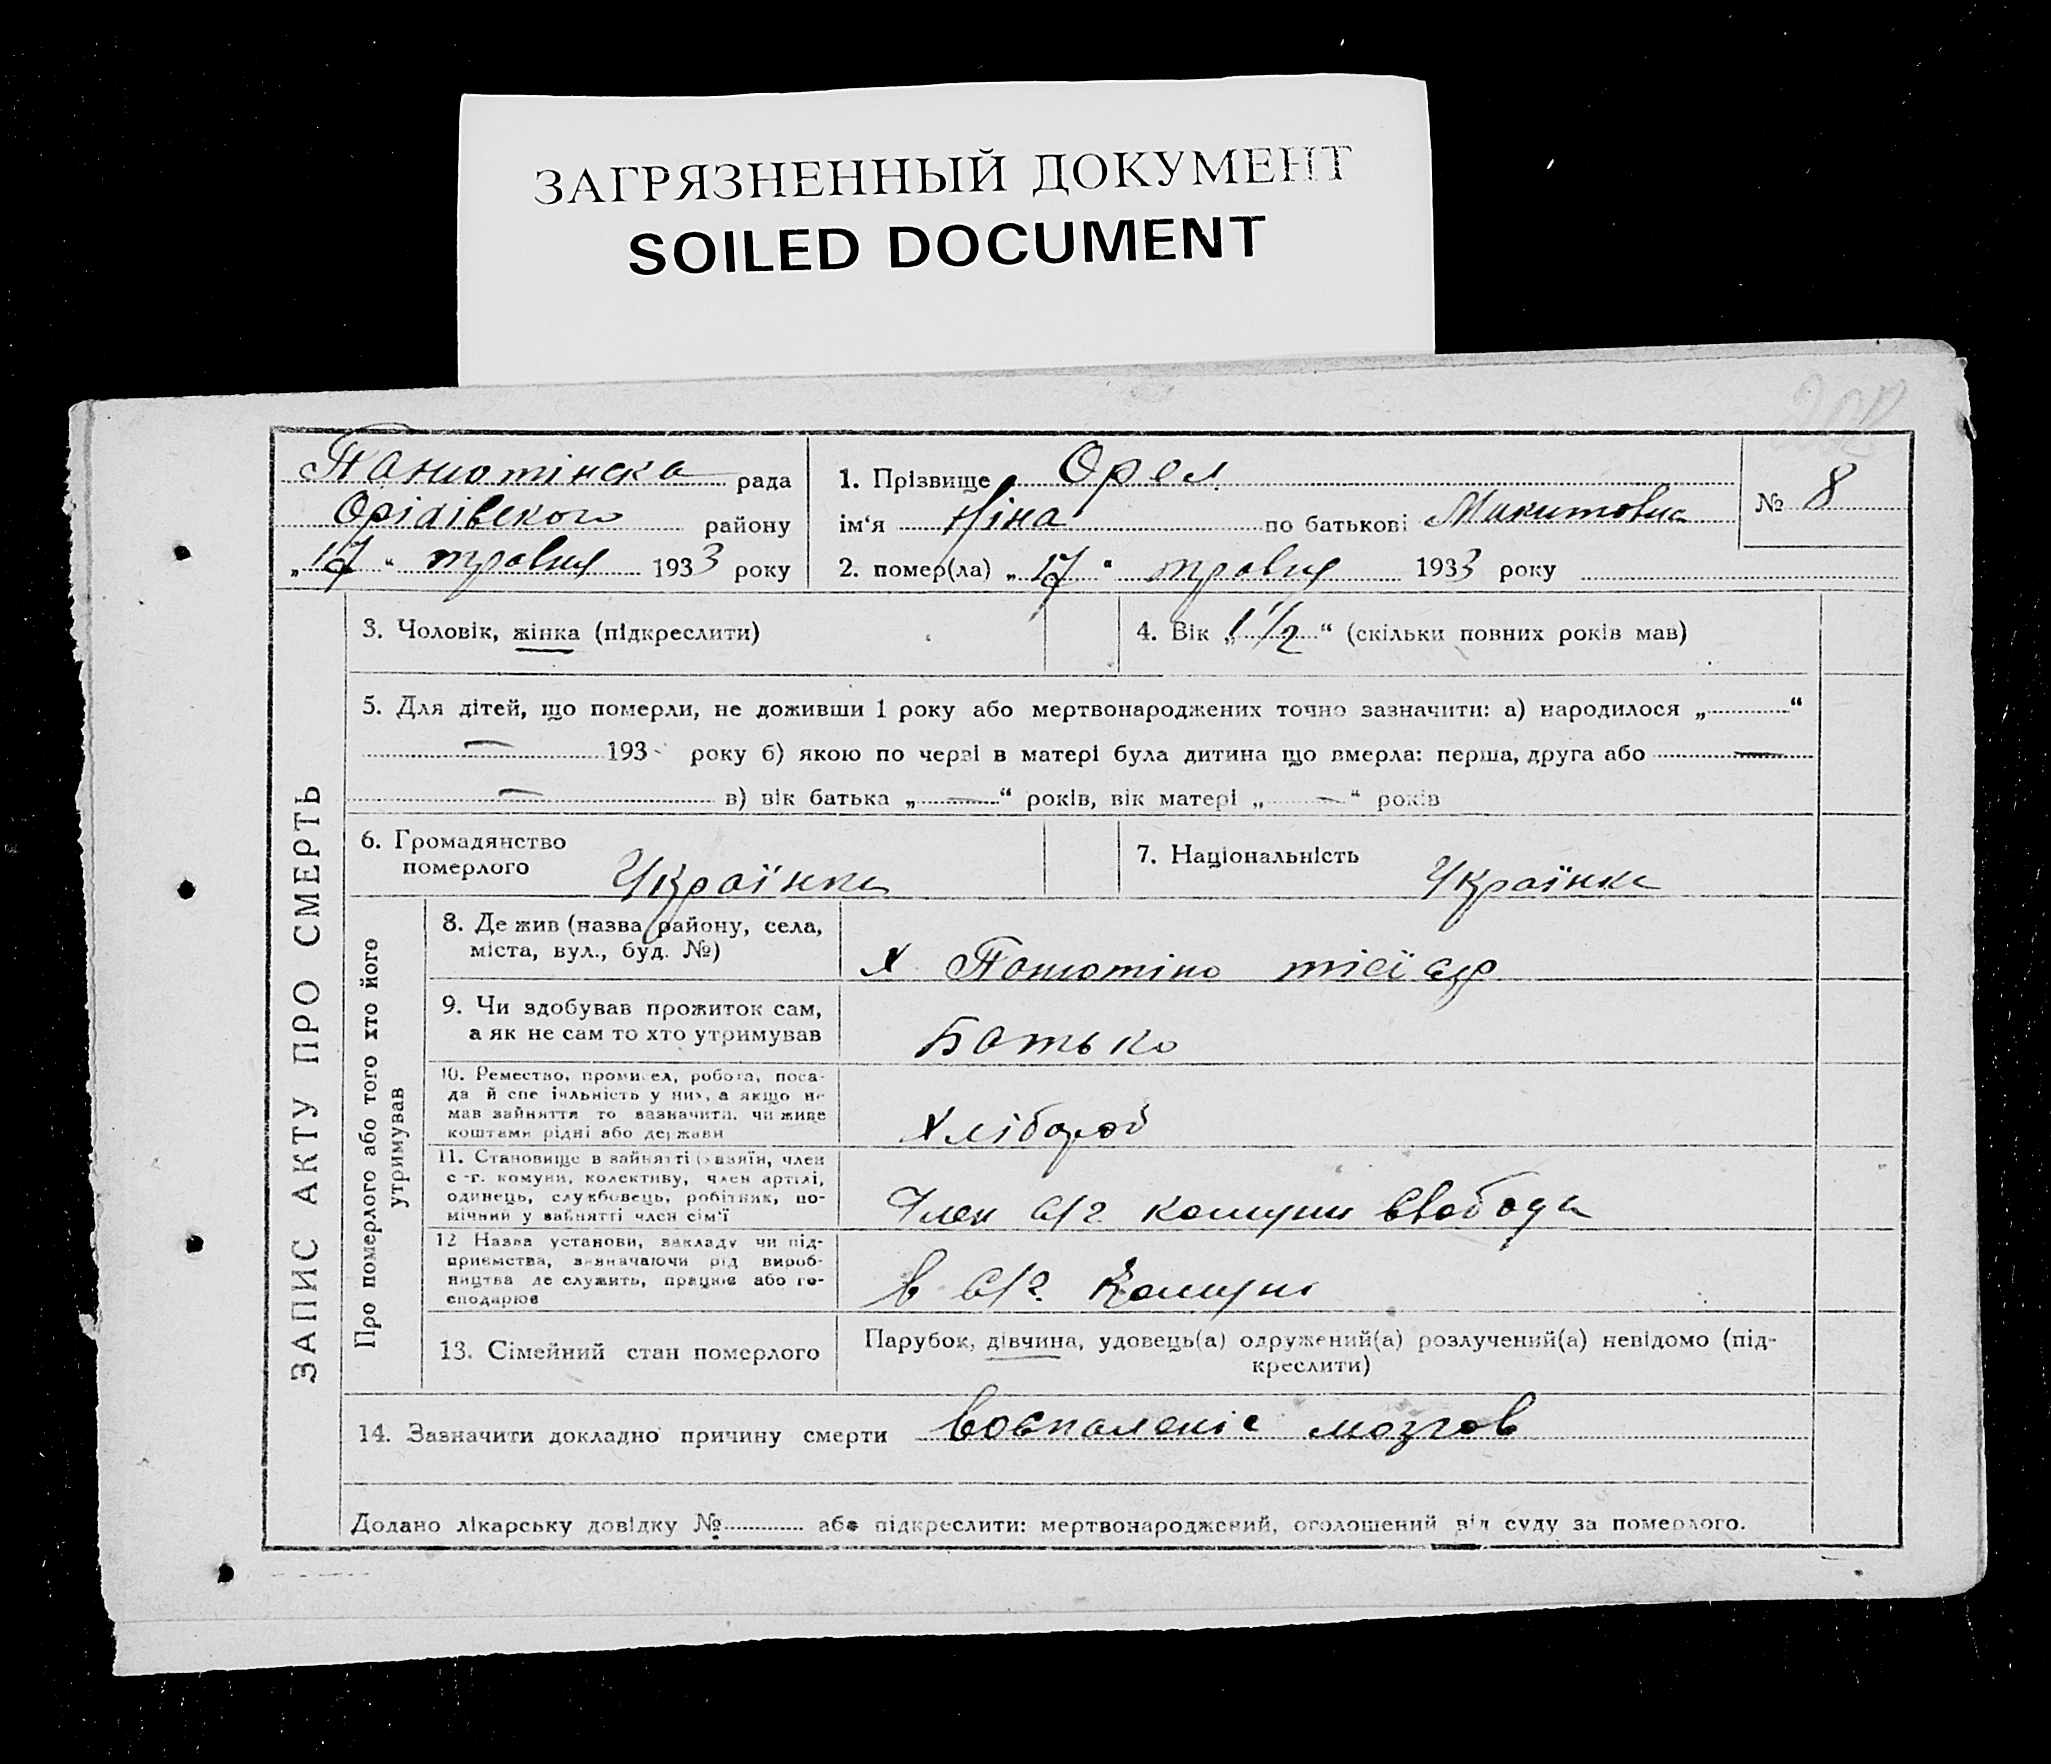 ЗАГРЯЗНЕННЫЙ ДОКУМЕНТ
SOILED DOCUMENT
ЗАПИС АКТУ ПРО СМЕРТЬ
Панютінска рада
району
„17“ травня 1933 року
1. Прізвище Орел
ім‘я Ніна по батькові Микитовна
№ 8
2. помер(ла) „17“ травня 1933 року
3. Чоловік, жінка (підкреслити)
4. Вік „1 1/2“ (скільки повних років мав)
5. Для дітей, що померли, не доживши 1 року або мертвонароджених точно зазначити: а) народилося „ “
— 193 року б) якою по черзі в матері була дитина що вмерла: перша, друга або —
— в) вік батька „—“ років, вік матері „—“ років
6. Громадянство
померлого Українка
7. Національність Українка
Про померлого або того хто його
утримував
8. Де жив (назва району, села,
міста, вул., буд. №)
х Панютіно тієї с/р
9. Чи здобував прожиток сам,
а як не сам то хто утримував
Батько
10. Ремество, промисел, робота, поса-
да й спеціяльність у них, а якщо не
мав зайняття то зазначити, чи живе
коштами рідні або держави
Хлібороб
11. Становище в зайнятті (хазяїн, член
с.-г. комуни, колективу, член артілі,
одинець, службовець, робітник, по-
мічний у зайнятті член сім'ї
Член с/г. комуни Свобода
12 Назва установи, закладу чи під-
приємства, зазначаючи рід вироб-
ництва де служить, працює або го-
сподарює
в с/г. Комуні
13. Сімейний стан померлого
Парубок, дівчина, удовець(а) одружений(а) розлучений(а) невідомо (під-
креслити)
14. Зазначити докладно причину смерти Воспаленіє мозгов
Додано лікарську довідку № або підкреслити: мертвонароджений, оголошений від суду за померлого.